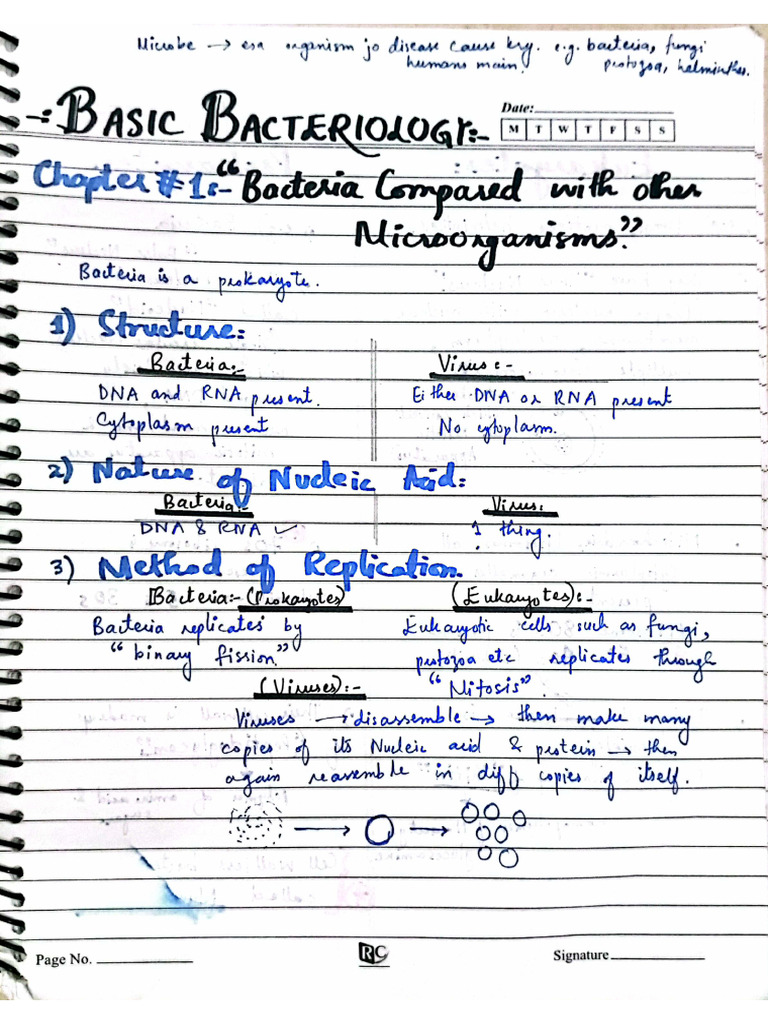 Microbe → esa organism jo disease cause kry. e.g. bacteria, fungi
humans main. protozoa, helminthes.
-:- BASIC BACTERIOLOGY:-
Date:
M T W T F S S
Chapter #1:- "Bacteria Compared with other
Microorganisms."
Bacteria is a prokaryote.
1) Structure:
Bacteria:- Virus:-
DNA and RNA present. Either DNA or RNA present
Cytoplasm present No cytoplasm.
2) Nature of Nucleic Acid:
Bacteria:- Virus:
DNA & RNA ✓ 1 thing.
3) Method of Replication.
Bacteria:- (Prokaryotes) (Eukaryotes):-
Bacteria replicates by Eukaryotic cells such as fungi,
"binary fission." protozoa etc replicates through
"Mitosis".
(Viruses):-
Viruses → disassemble → then make many
copies of its Nucleic acid & protein → then
again reassemble in diff copies of itself.
Page No. RC Signature